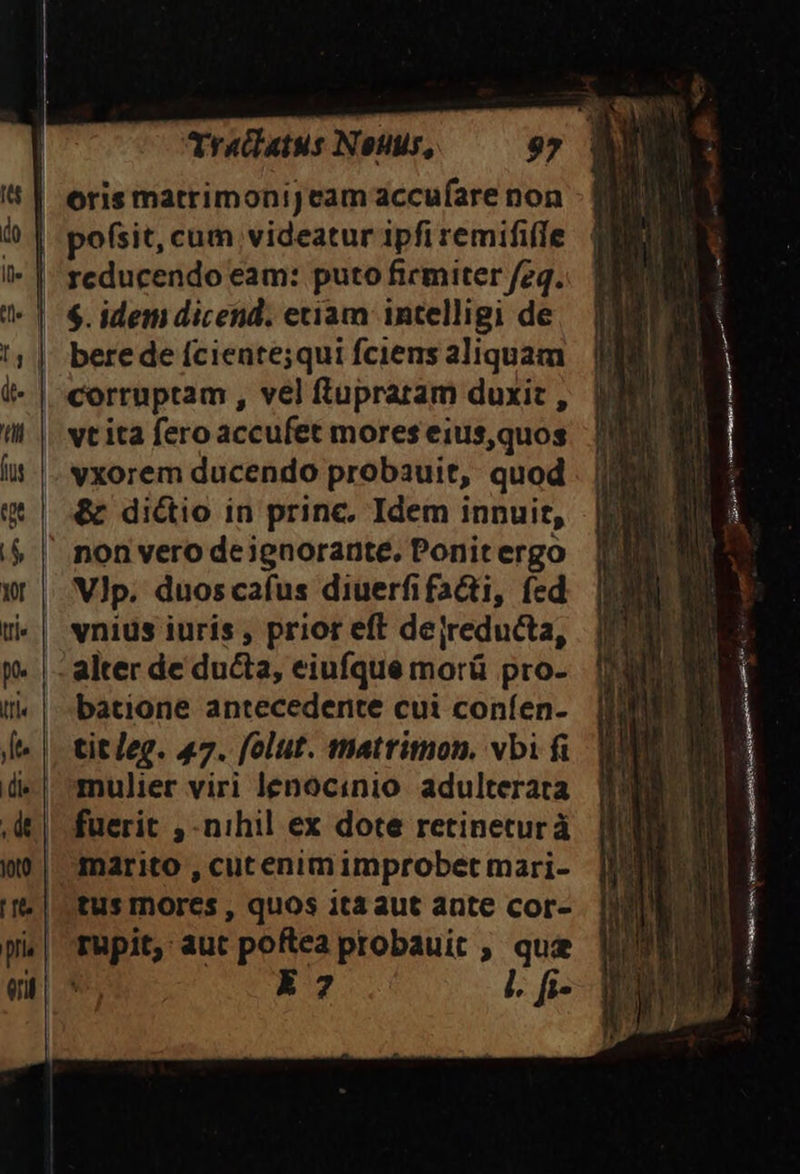 Tractatus Nouus, 97
oris matrimonij eam accuſare non
poſsit, cum videatur ipſi remiſiſſe
reducendo eam: puto firmiter ſeq.
§. idem dicend. etiam intelligi de
bere de ſciente; qui ſciens aliquam
corruptam, vel ſtupratam duxit,
vt ita ſero accuſet mores eius, quos
vxorem ducendo probauit, quod
& dictio in princ. Idem innuit,
non vero de ignorante. Ponit ergo
Vlp. duos caſus diuerſi facti, ſed
vnius iuris, prior eſt de reducta,
alter de ducta, eiuſque morū pro-
batione antecedente cui conſen-
tit leg. 47. ſolut. matrimon. vbi ſi
mulier viri lenocinio adulterata
fuerit, nihil ex dote retinetur à
marito, cur enim improbet mari-
tus mores, quos ita aut ante cor-
rupit, aut poſtea probauit, quæ
E 7 l. ſi-